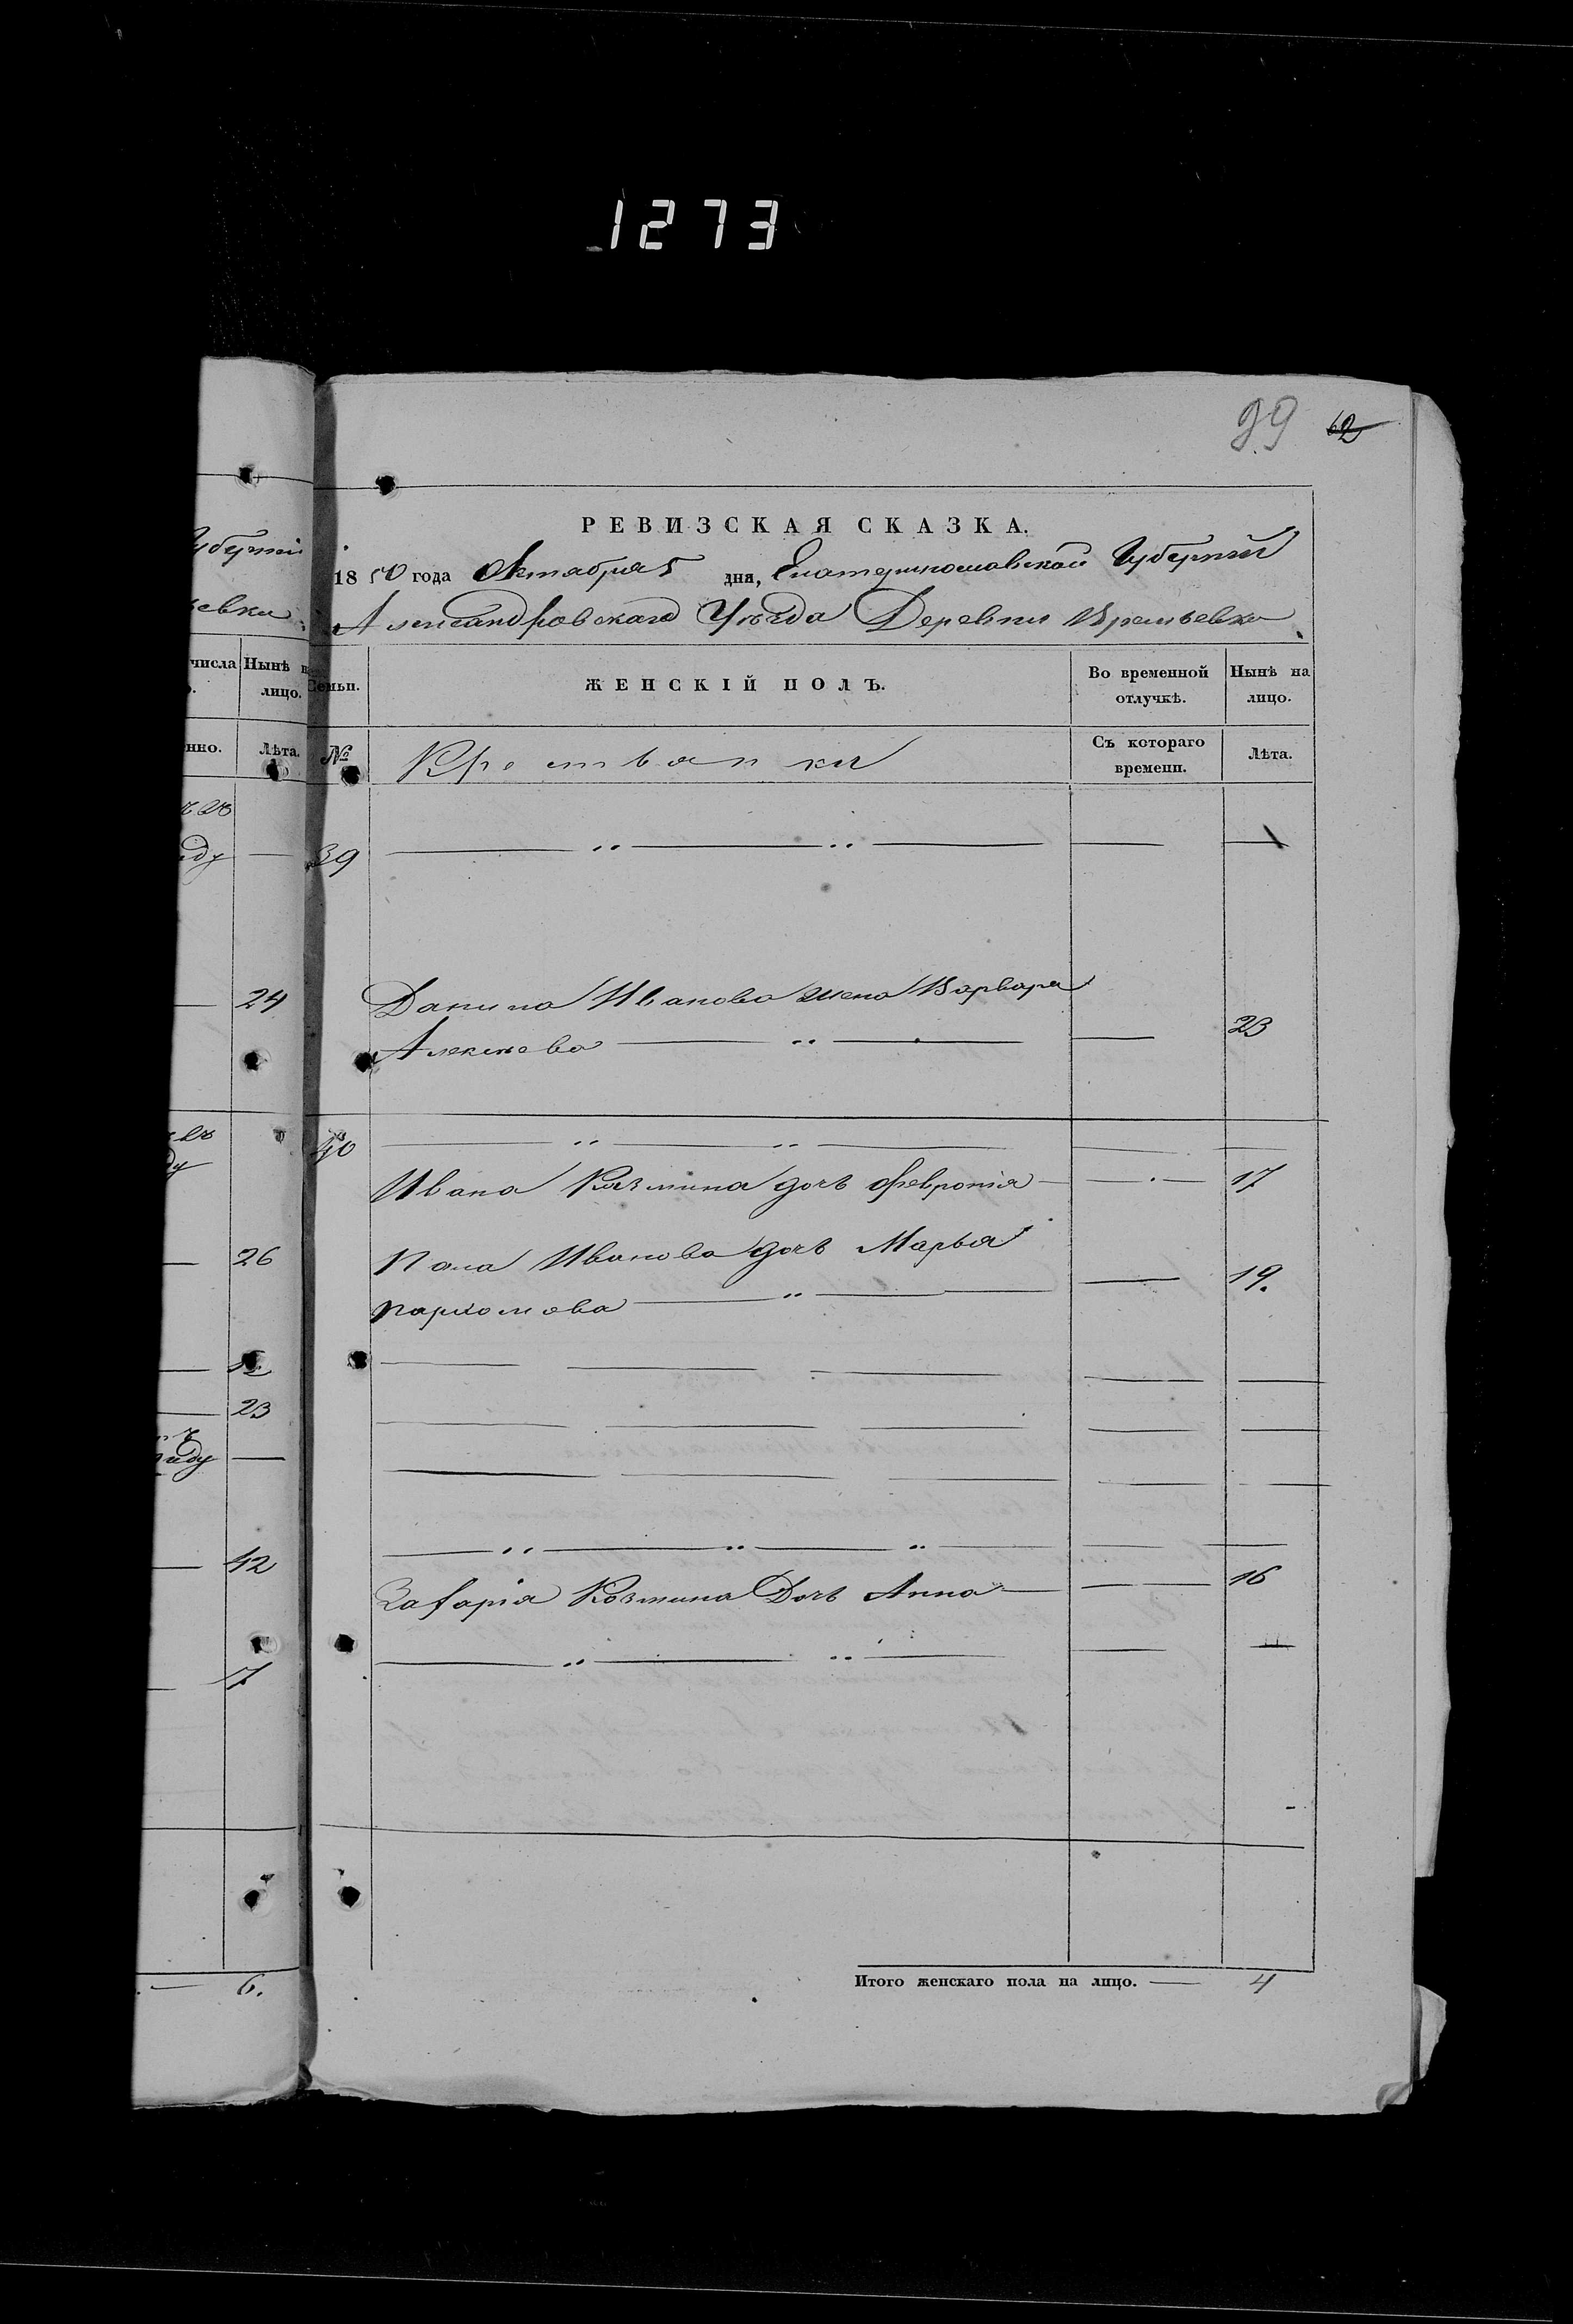 1273
99 62
РЕВИЗСКАЯ СКАЗКА.
Губерніи
1850 года Октября 5 дня, Екатеринославской Губерніи
Александровскаго Уѣзда Деревни Времьевки
числа
Нынѣ на лицо.
Семьи.
ЖЕНСКІЙ ПОЛЪ.
Во временной отлучкѣ.
Нынѣ на лицо.
нно.
Лѣта.
№
Крестьянки
Съ котораго времени.
Лѣта.
39
24
Данила Иванова жена Варвара
Алексѣева — 23
40
Ивана Козмина дочь Февронія — 17
26
Иванова дочь Марья
Пархомова — 19.
12
23
42
Захарія Козмина Дочь Анна — 16
7
6.
Итого женскаго пола на лицо. — 4